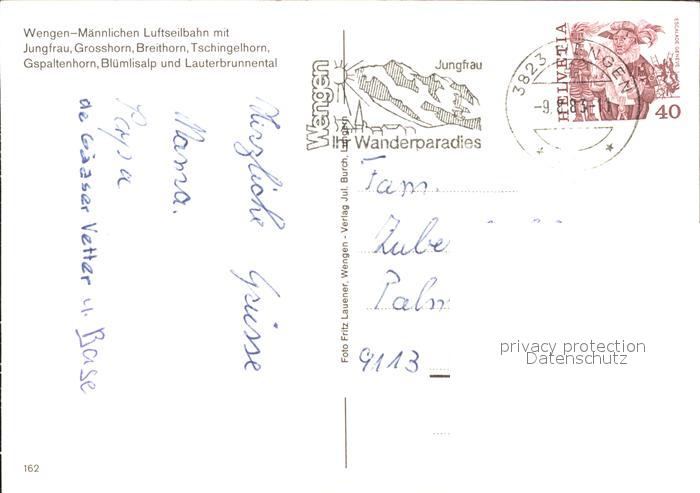 Wengen–Männlichen Luftseilbahn mit
Jungfrau, Grosshorn, Breithorn, Tschingelhorn,
Gspaltenhorn, Blümlisalp und Lauterbrunnental
Wengen
Jungfrau
Ihr Wanderparadies
3823 WENGEN
-9.8.83-11
HELVETIA
ESCALADE GENÈVE
40
Herzliche Grüsse
Mama.
Papa
Vetter u. Base
Foto Fritz Lauener, Wengen - Verlag Jul. Burch,
Fam.
Zube
Palm
9113
privacy protection
Datenschutz
162